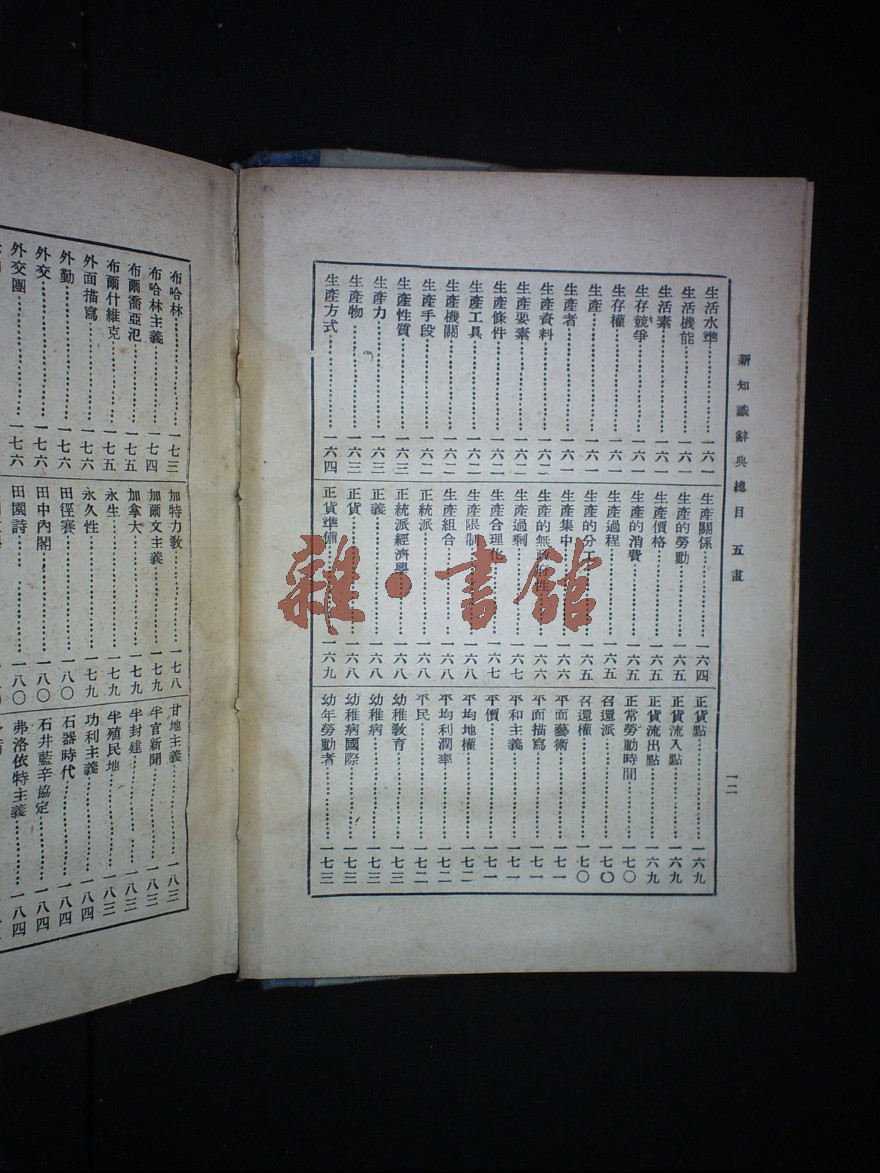 新知識辭典總目 五畫
一二
生活水準 一六一
生活機能 一六一
生活素 一六一
生存競爭 一六一
生存權 一六一
生產 一六一
生產者 一六二
生產資料 一六二
生產要素 一六二
生產條件 一六二
生產工具 一六二
生產機關 一六二
生產手段 一六二
生產性質 一六三
生產力 一六三
生產物 一六三
生產方式 一六四
生產關係 一六四
生產的勞動 一六五
生產價格 一六五
生產的消費 一六五
生產過程 一六五
生產的分工 一六五
生產集中 一六六
生產的無政府性 一六六
生產過剩 一六七
生產合理化 一六七
生產限制 一六八
生產組合 一六八
正統派 一六八
正統派經濟學 一六八
正義 一六八
正貨 一六八
正貨準備 一六九
正貨點 一六九
正貨流入點 一六九
正貨流出點 一六九
正常勞動時間 一七〇
召還派 一七〇
召還權 一七〇
平面藝術 一七一
平面描寫 一七一
平和主義 一七一
平價 一七一
平均地權 一七二
平均利潤率 一七二
平民 一七二
幼稚教育 一七三
幼稚病 一七三
幼稚病國際 一七三
幼年勞動者 一七三
布哈林 一七三
布哈林主義 一七四
布爾喬亞氾 一七五
布爾什維克 一七五
外面描寫 一七六
外勤 一七六
外交 一七六
外交團 一七六
加特力教 一七八
加爾文主義 一七九
加拿大 一七九
永生 一七九
永久性 一七九
田徑賽 一八〇
田中內閣 一八〇
田園詩 一八〇
甘地主義 一八三
半官新聞 一八三
半封建 一八三
半殖民地 一八三
功利主義 一八四
石器時代 一八四
石井藍辛協定 一八四
弗洛依特主義 一八四
雜·書館